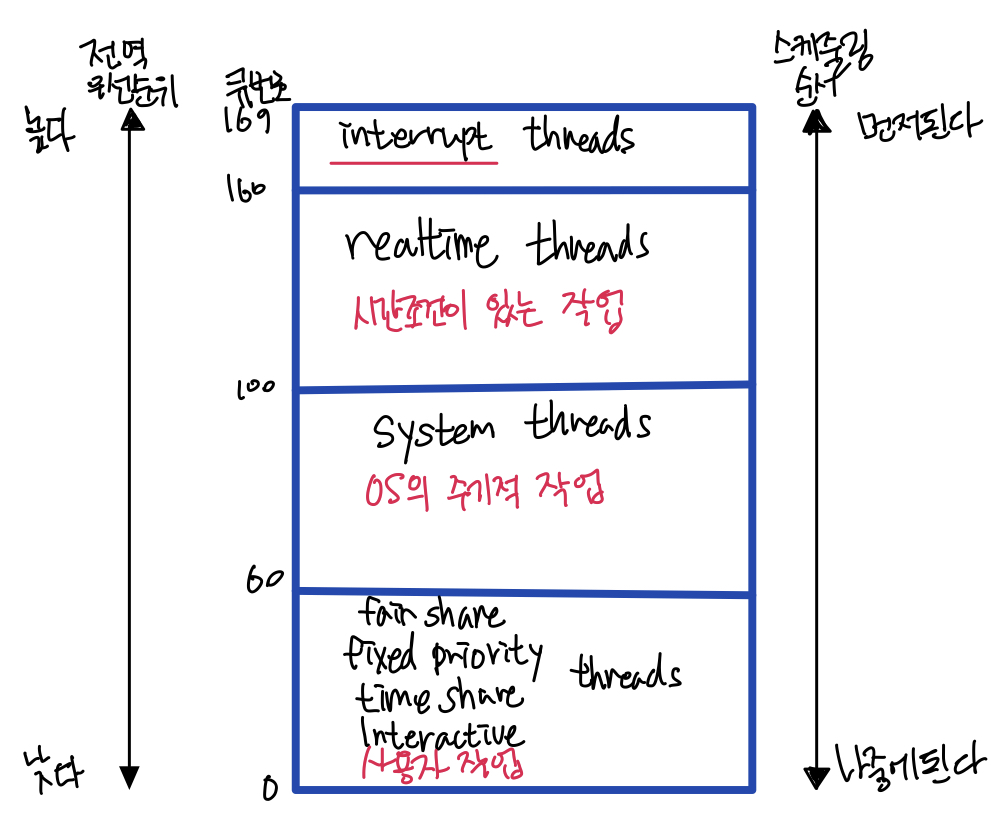 전역
우선순위
높다
낮다
큐번호
169
160
100
60
0
interrupt threads
realtime threads
시간조건이 있는 작업
system threads
OS의 주기적 작업
fair share
fixed priority
time share
Interactive
threads
사용자 작업
스케줄링
순서
먼저된다
나중에된다